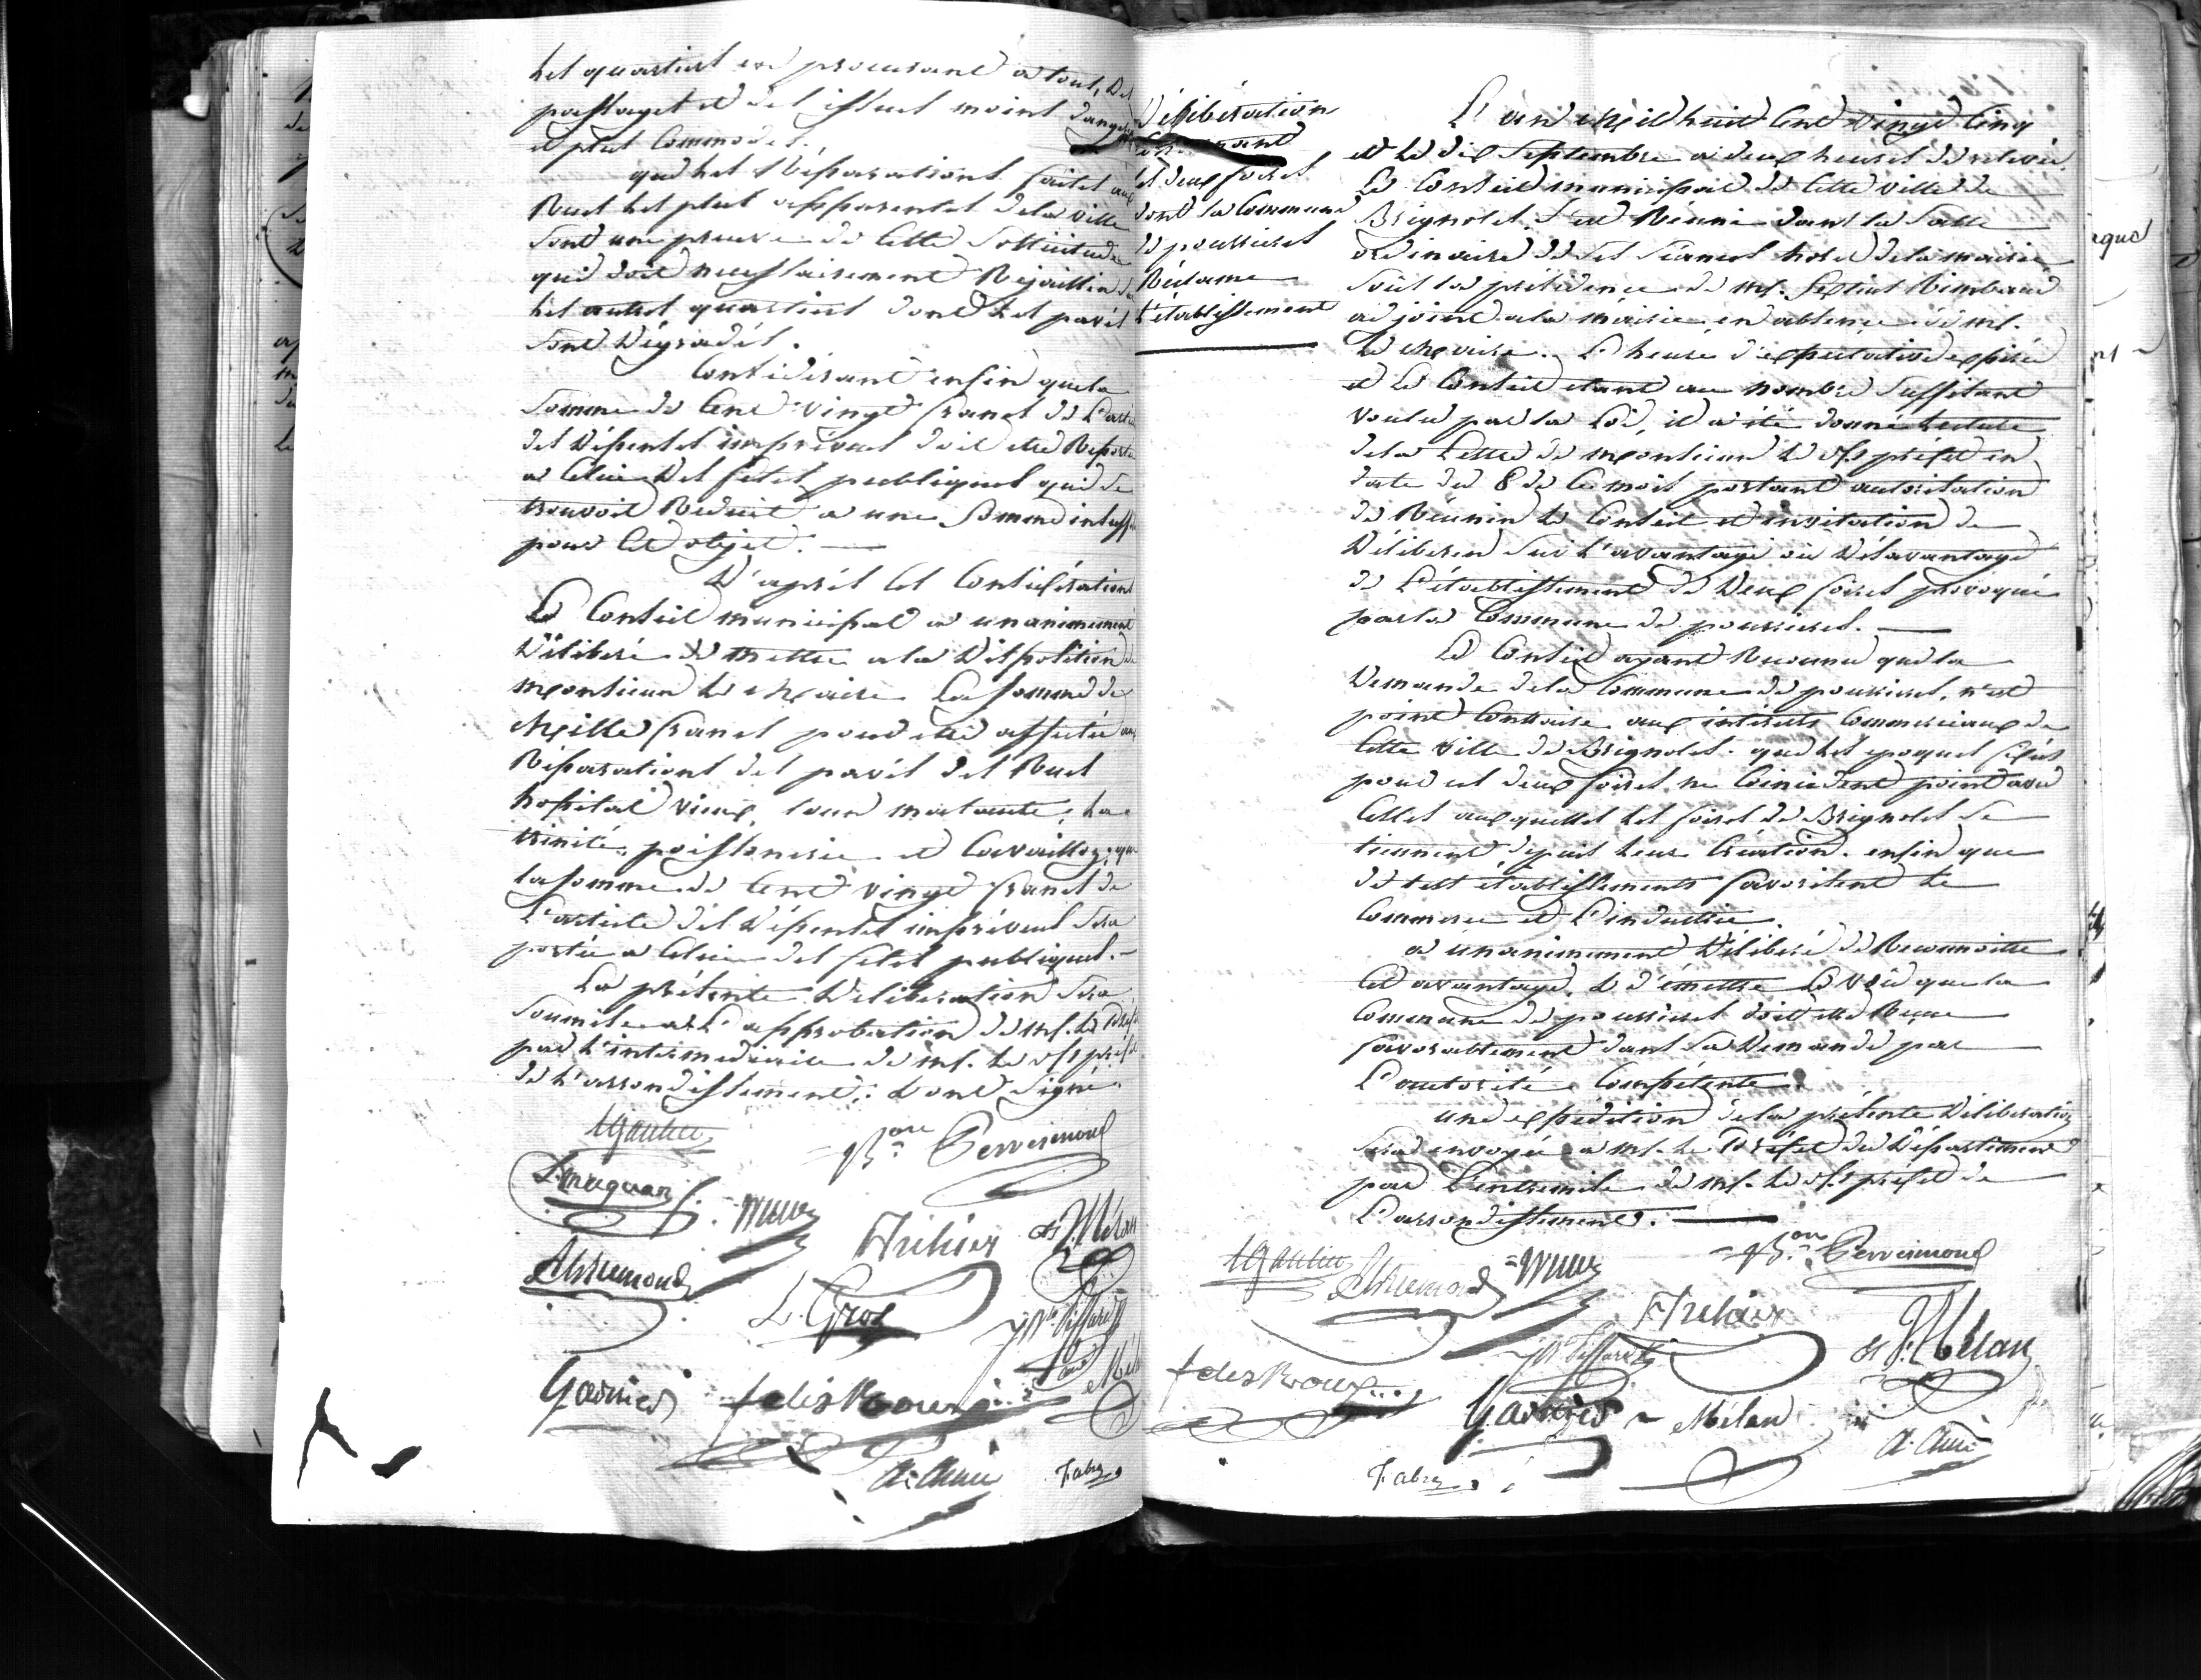 les quartiers en procurant a tous, des
passages et des issues moins dangereux
et plus commodes.
que les Réparations faites aux
Rues les plus apparentes de la ville
sont une preuve de cette sollicitude
qui doit necessairement Rejaillir sur
les autres quartiers dont les pavés
sont dégradés.
Considérant enfin que la
somme de cent vingt francs de l'article
des dépenses imprévues doit etre Reportée
a celui des fetes publiques qui se
trouvoit Reduit a une somme insuffi
pour cet objet.
D'après ces considérations
Le Conseil municipal a unanimement
Déliberé de mettre a la disposition de
monsieur le maire la somme de
Mille francs pour etre affectée aux
Réparations des pavés des Rues
hospital vieux, cour malaute, la
trinité, poissonerie et Cavaillon; que
la somme de cent vingt francs de
l'article des dépenses imprévues sera
portée a celui des fetes publiques.
La présente déliberation sera
soumise a l'approbation de mr. le Préfet
par l'intermediaire de mr. le s/s préfet
de l'arrondissement; & ont signé.
Maquan
L. Gros
Garnier
Fabre
Déliberation
Concernant
les deux foires
dont la Commune
de pourrieres
Réclame
l'établissement
L'an Mil huit cent vingt cinq
et le dix Septembre a deux heures de relevée
Le Conseil municipal de cette ville de
Brignoles, s'est Réuni dans la salle
ordinaire de ses séances hotel de la mairie
sous la présidence de mr. Septius Rimbaud
adjoint a la mairie, en absence de mr.
Le Maire. L'heure d'expectative expirée
et le Conseil etant au nombre suffisant
voulu par la Loi, il a été donné lecture
de la Lettre de monsieur le s/s préfet en
date du 8 de ce mois portant autorisation
de Réunir le Conseil et invitation de
Déliberer sur l'avantage ou désavantage
de l'établissement de deux foires provoqué
par la Commune de pourrieres.
Le Conseil ayant Reconnu que la
Demande de la commune de pourrieres, n'est
point contraire aux intérets commerciaux de
cette ville de Brignoles. que les epoques fixées
pour ces deux foires, ne coincident point avec
celles auxquelles les foires de Brignoles se
tiennent depuis leur création. enfin que
de tels établissements favorisent le
commerce et l'industrie.
a unanimement Déliberé de Reconnoitre
cet avantage, & d'émettre le vœu que la
Commune de pourrieres doit etre Reçue
favorablement dans sa demande par
L'autorité Compétente.
une expédition de la présente Déliberation
sera envoyée a mr. le Préfet du Département
par l'entremise de mr. le s/s préfet de
L'arrondissement.
Garnier Mélan
Fabre